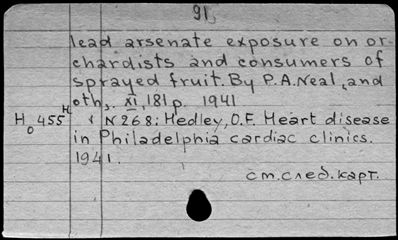 91
lead arsenate exposure on or-
chardists and consumers of
sprayed fruit. By P.A.Neal, and
oth,. XI, 181 p. 1941
H₀ 455 H & N 268: Hedley, O.F. Heart disease
in Philadelphia cardiac clinics.
1941.
см.след.карт.